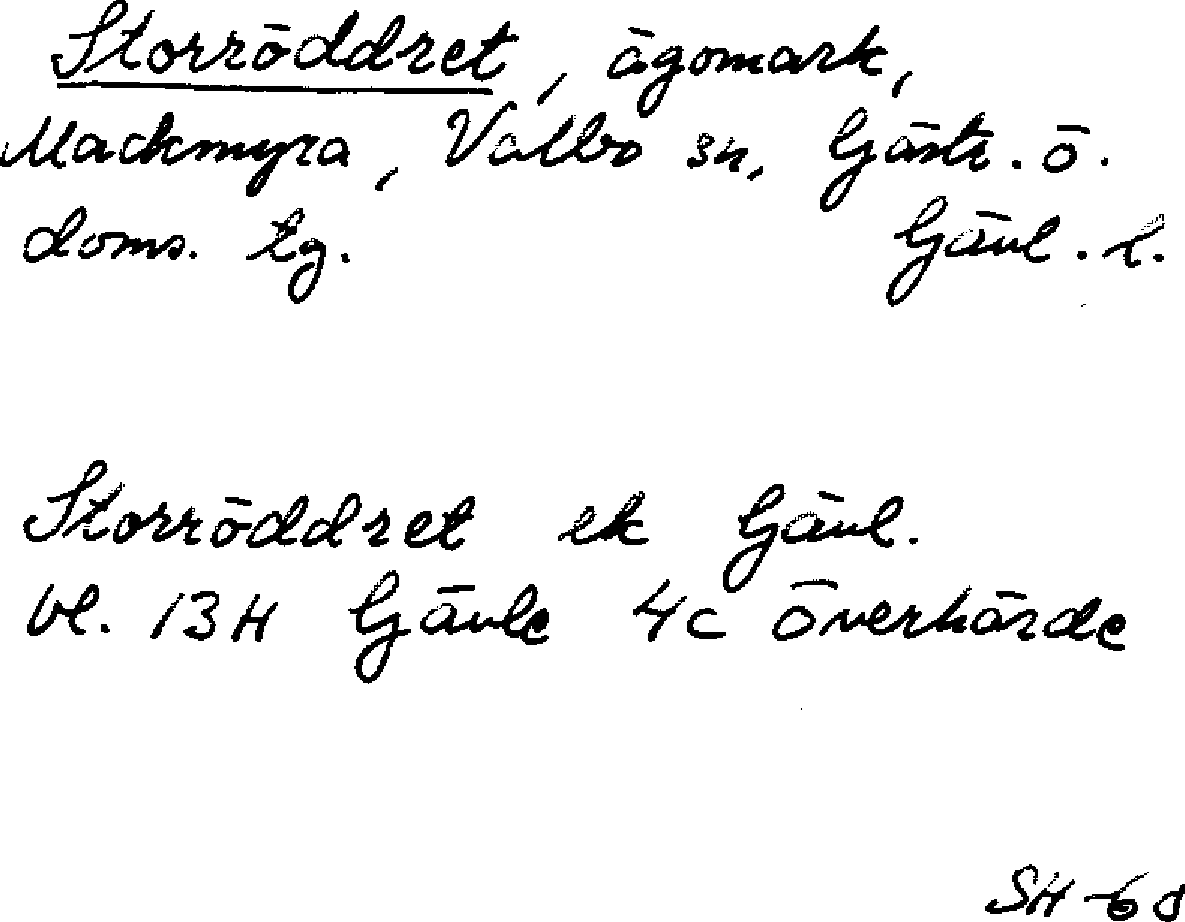 Storröddret, ägomark,
Mackmyra, Valbo sn, Gästr. ö.
doms. tg. Gävl. l.
Storröddret ek Gävl.
bl. 13H Gävle 4c Överhärde
SH -60